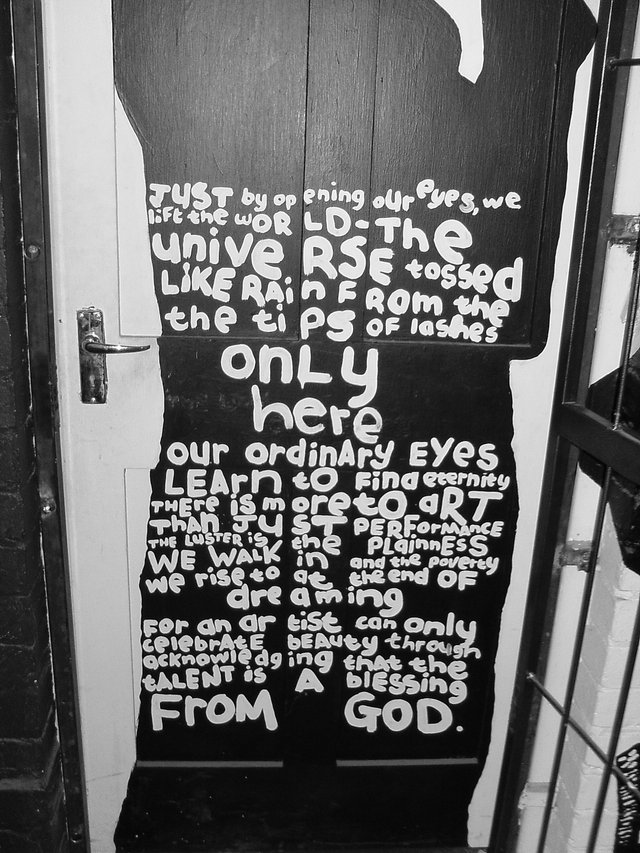 JUST by opening our eyes, we
lift the WORLD-The
universe tossed
LIKE RAin FROM the
the tips OF lashes
onLy
here
our ordinAry EYes
LEArn to Find eternity
THEre is more to aRT
THAN JUST PERFormANCE
THE LUSTER is the PLainnESS
WE WALK in and the poverty
we rise to at the end OF
dreaming
For an artist can only
celebrATE bEAuty through
acknowledging thAt the
tALENT is A blessing
FroM GOD.